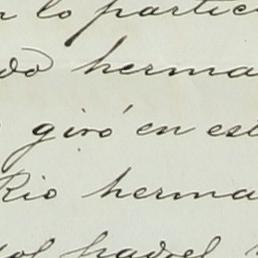 lo partic
do herma
giró en est
Rio herma
padre